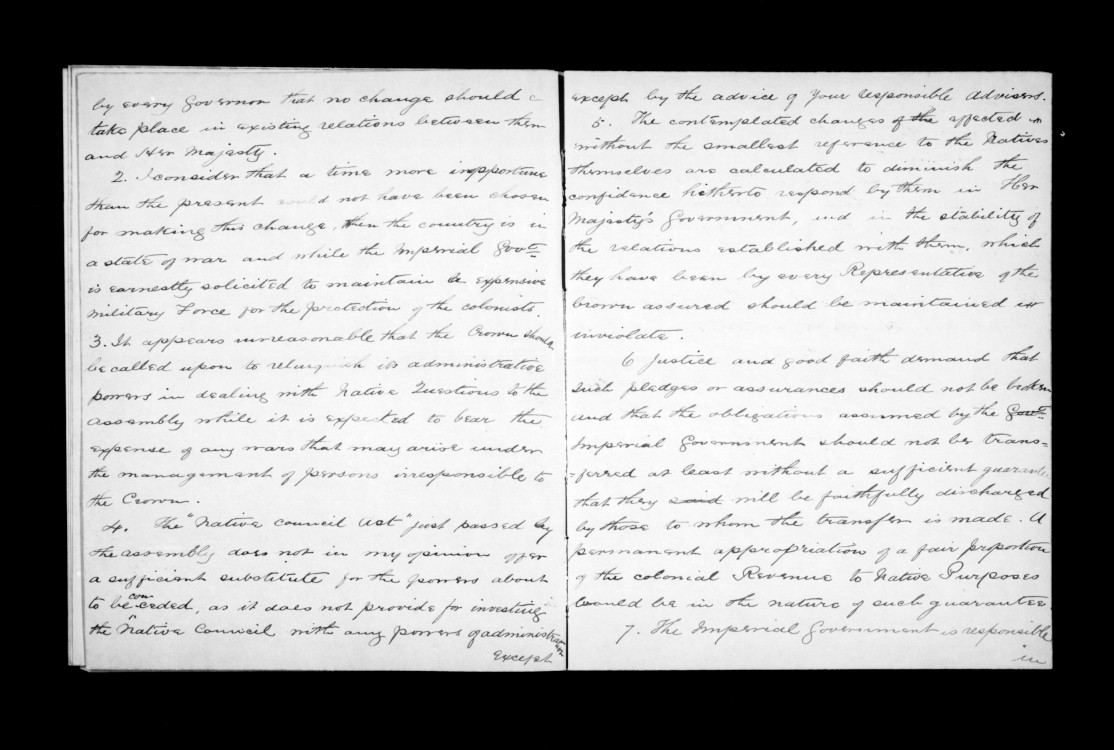 by every Governor that no change should
take place in existing relations between them
and Her Majesty.
2. I consider that a time more inopportune
than the present could not have been chosen
for making this change, when the country is in
a state of war and while the Imperial Govt
is earnestly solicited to maintain an expensive
Military Force for the protection of the colonists.
3. It appears unreasonable that the Crown should
be called upon to relinquish its administrative
powers in dealing with Native Questions to the
assembly while it is expected to bear the
expense of any wars that may arise under
the management of persons irresponsible to
the Crown.
4. The "Native Council Act" just passed by
the assembly does not in my opinion offer
a sufficient substitute for the powers about
to be con-ceded, as it does not provide for investing
the Native Council with any powers of administration
Except
except by the advice of Your responsible Advisers.
5. The contemplated changes of the effected in
without the smallest reference to the Natives
themselves are calculated to diminish the
confidence hitherto respond by them in Her
Majesty's Government, and in the stability of
the relations established with them, which
they have been by every Representative of the
Crown assured should be maintained
inviolate.
6 Justice and good faith demand that
such pledges or assurances should not be broken
and that the obligations assumed by the Govt
Imperial Government should not be trans=
=ferred at least without a sufficient guarantee
that they said will be faithfully discharged
by those to whom the transfer is made. A
permanent appropriation of a fair proportion
of the colonial Revenue to Native Purposes
would be in the nature of such guarantee.
7. The Imperial Government is responsible
in